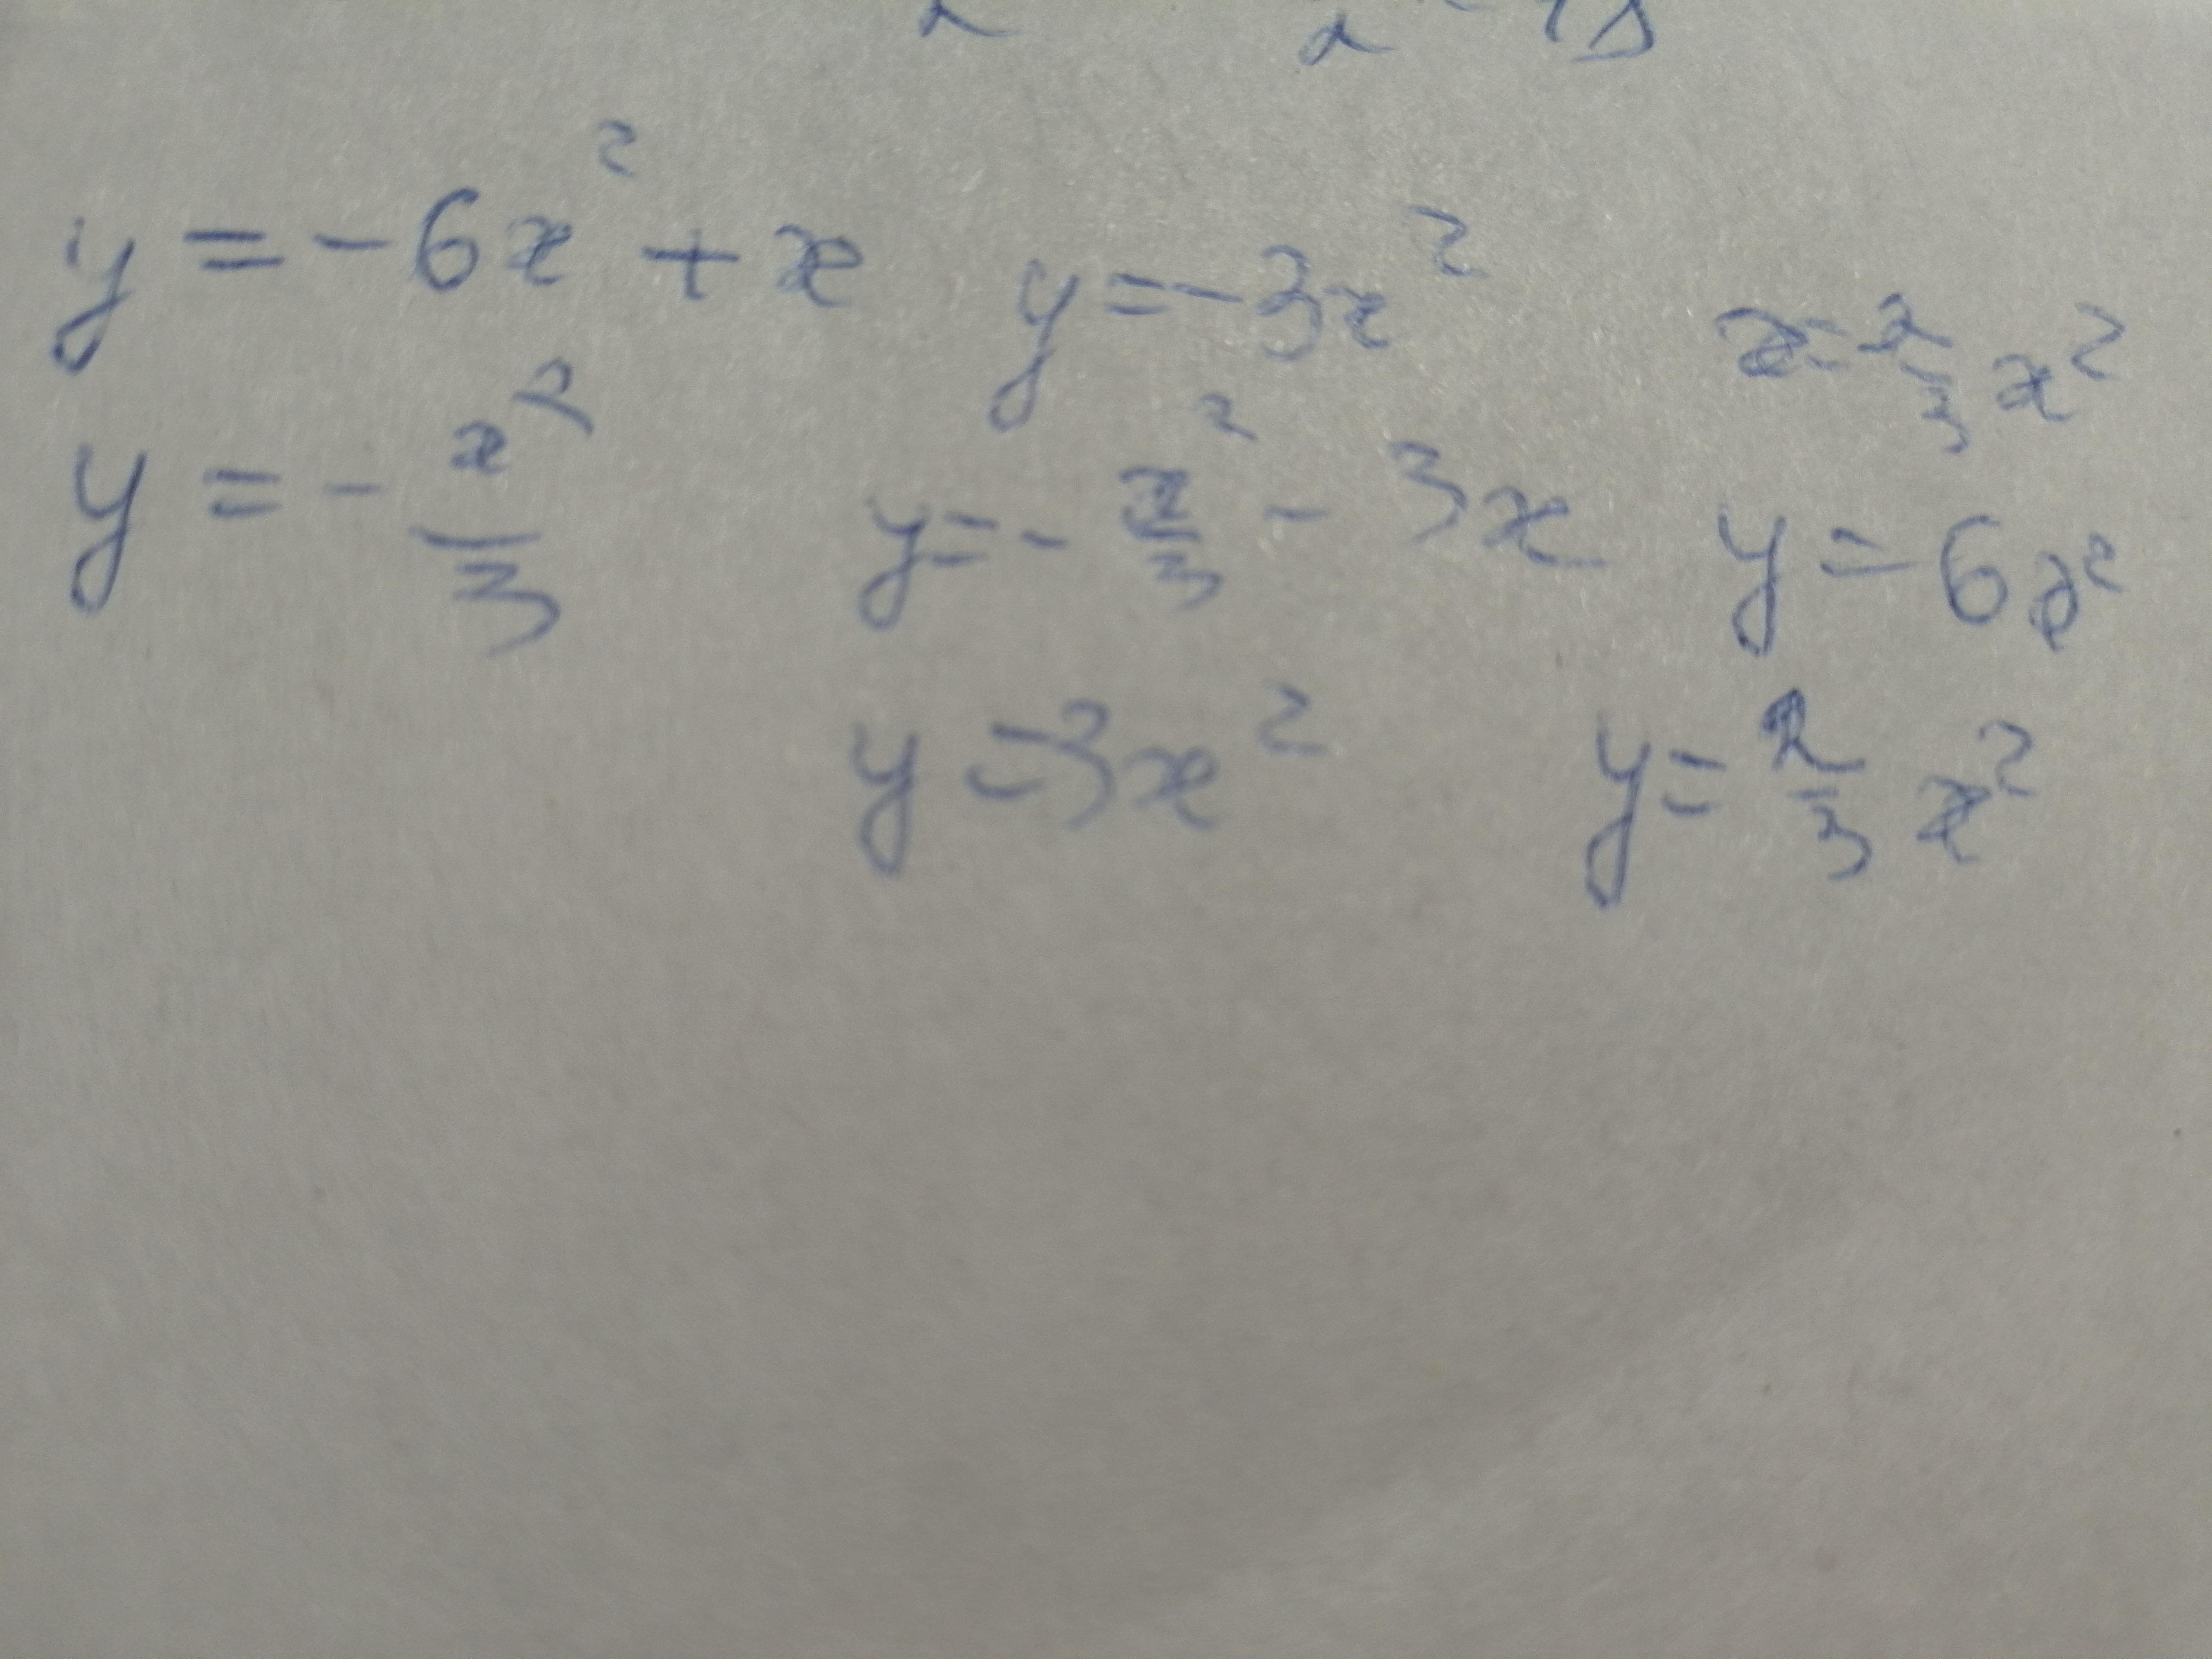 y = -6x² + x y = -3x² x = 2/3 x²
y = - x²/3 y = - x²/3 - 3x y = 6x²
y = 3x² y = 2/3 x²